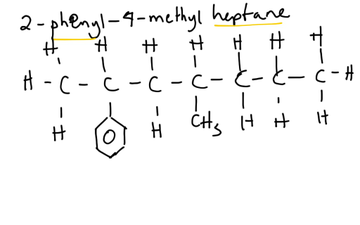 2-phenyl-4-methyl heptane
H H H H H H H
H - C - C - C - C - C - C - C - H
H H CH3 H H H